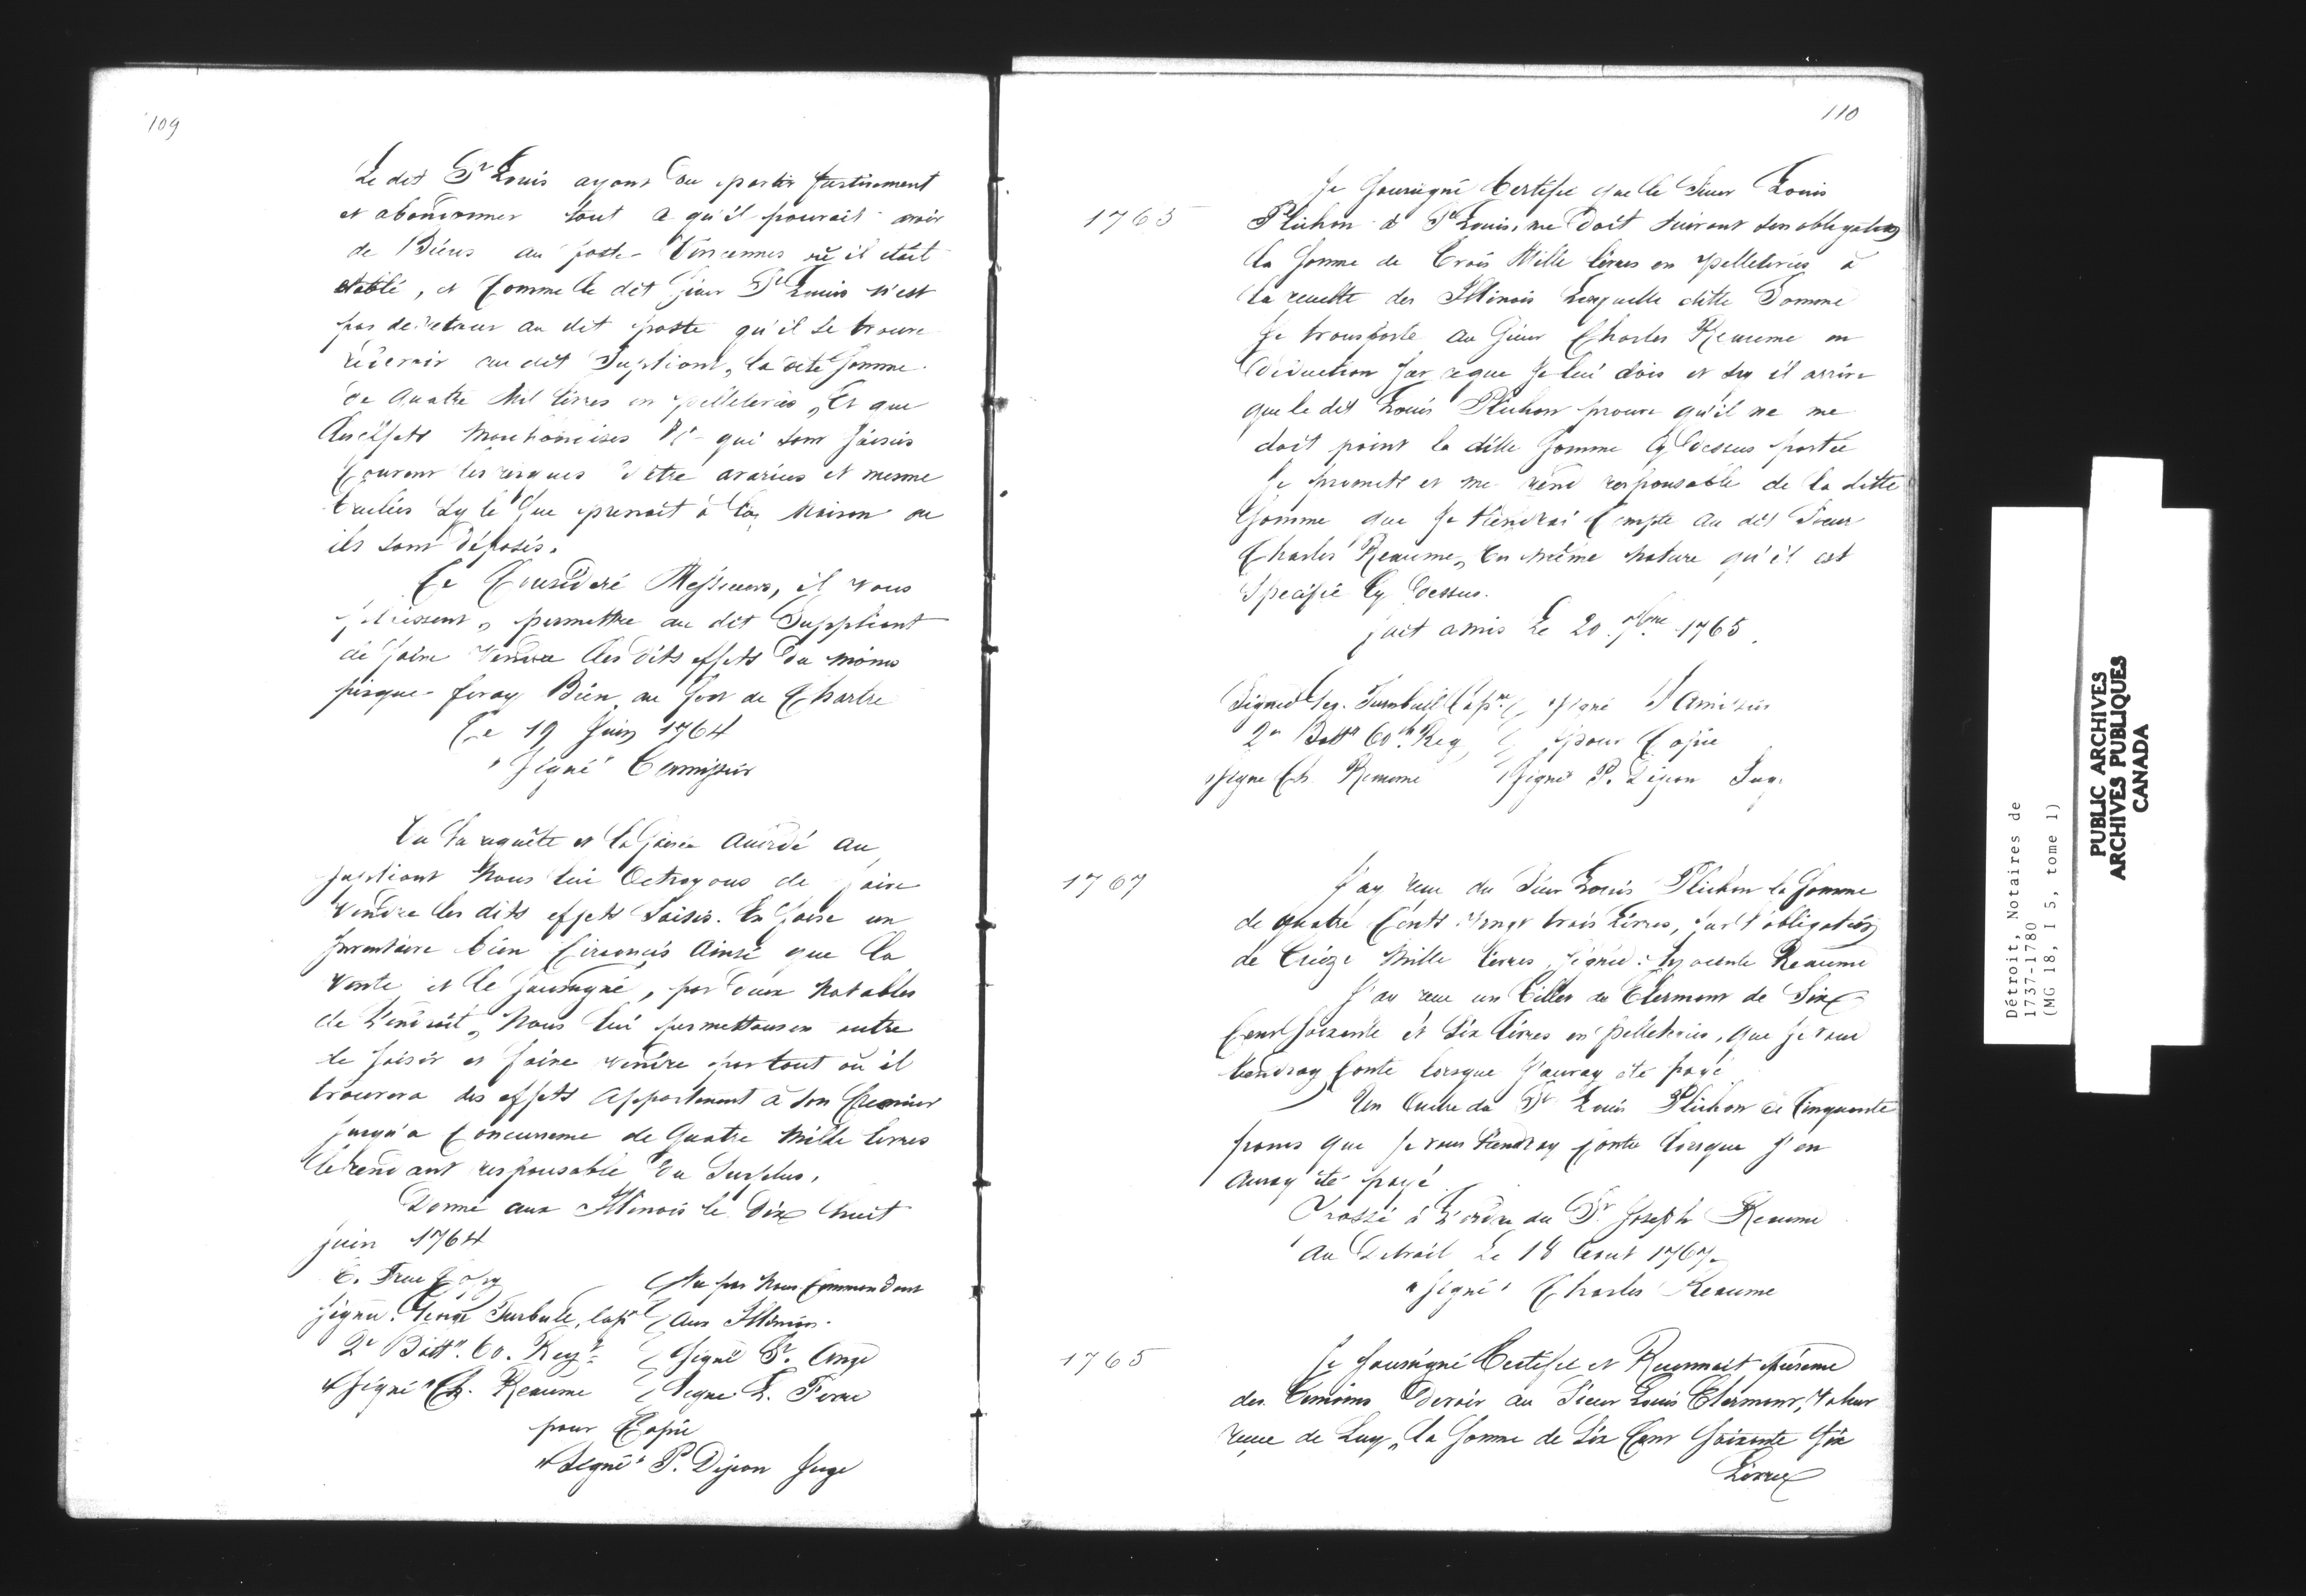 109
Le dit St Louis ayant du partir furtivement
et abandonner tout a qu'il pourait avoir
de Biens au poste Vincennes où il etait
etabli, et Comme le dit Sieur St Louis n'est
pas de retour au dit poste qu'il se trouve
redevoir au dit Supliant, la dite Somme
de Quatre Mil livres en pelleteries, Et que
les effets Marchandises &c qui sont saisis
Courant les risques d'etre avaries et mesme
brulées Sy le feu prenait à la Maison ou
ils sont déposés.
Ce Consideré Messieurs, il vous
plaissent, permettre au dit Suppliant
de faire Vendre les dits effets du moins
 feray Bien au fort de Chartre
Ce 19 Juin 1764
"Signé"
Vu la requête et la saisie accordé au
supliant Nous lui Octroyons de faire
Vendre les dits effets Saisis. En faire un
Inventaire bien Circoncis Ainsi que la
Vente et le soussigné, par deux Notables
de l'endroit, Nous lui permettons en outre
de saisir et faire vendre partout où il
trouvera des effets Appartenant à Son
jusqu'a Concurrence de Quatre Mille livres
le rendant responsable du Surplus.
Donné aux Illinois le Dix huit
juin 1764
C. True Copy
Vu par Nous Commendant
signed. George Turbule, Capt
aux Illinois.
2d Battn. 60. Regt
Signé St. Ange
"Signé" Ch. Reaume
Signé
pour Copie
"Signé" P. Dejean Juge
110
1765
Je Soussigné Certifie que le Sieur Louis
Plichon dt St Louis, me Doit suivant son obligation
la Somme de Trois Mille livres en pelleteries à
la recette des Illinois Lesquelle ditte Somme
Je transporte au Sieur Charles Reaume en
Diduction sur ceque Je lui dois et Sy il arrive
que le dit Louis Plichon prouve qu'il ne me
doit point la ditte Somme Cy Dessus portée
Je promets et me rend responsable de la ditte
Somme que Je tiendrai Compte au dit Sieur
Charles Reaume, En même Nature qu'il est
Specifié Cy Dessus.
fait 20. 7bre. 1765.
Signed Geo. Turnbull Capt.
Signé
2d Battn 60th Reg
pour Copie
Signé Ch. Reaume
Signé P. Dejean Juge
1767
J'ay reçu du Sieur Louis Plichon la Somme
de Quatre Cents Vingt trois livres, sur l'obligation
de Treize Mille livres, Signée: Hyacente Reaume
J'ay reçu un billet de Clermont de Six
Cent Soixante et Six livres en pelleteries, que je vous
tiendray Conte lorsque J'auray été payé
Un Autre du Sr Louis Plichon de Cinquante
francs que Je vous tiendray Conte lorsque J'en
auray été payé
Passé à l'ordre du Sr. Joseph Reaume
Au Detroit Le 18 aout 1767.
"Signé" Charles Reaume
1765
Je Soussigné Certifie et Reconnait présence
des Temoins Devoir au Sieur Louis Clermont, Valeur
reçue de Luy, la Somme de Six Cent Soixante Six
Livres
Détroit, Notaires de
1737-1780
(MG 18, I 5, tome 1)
PUBLIC ARCHIVES
ARCHIVES PUBLIQUES
CANADA